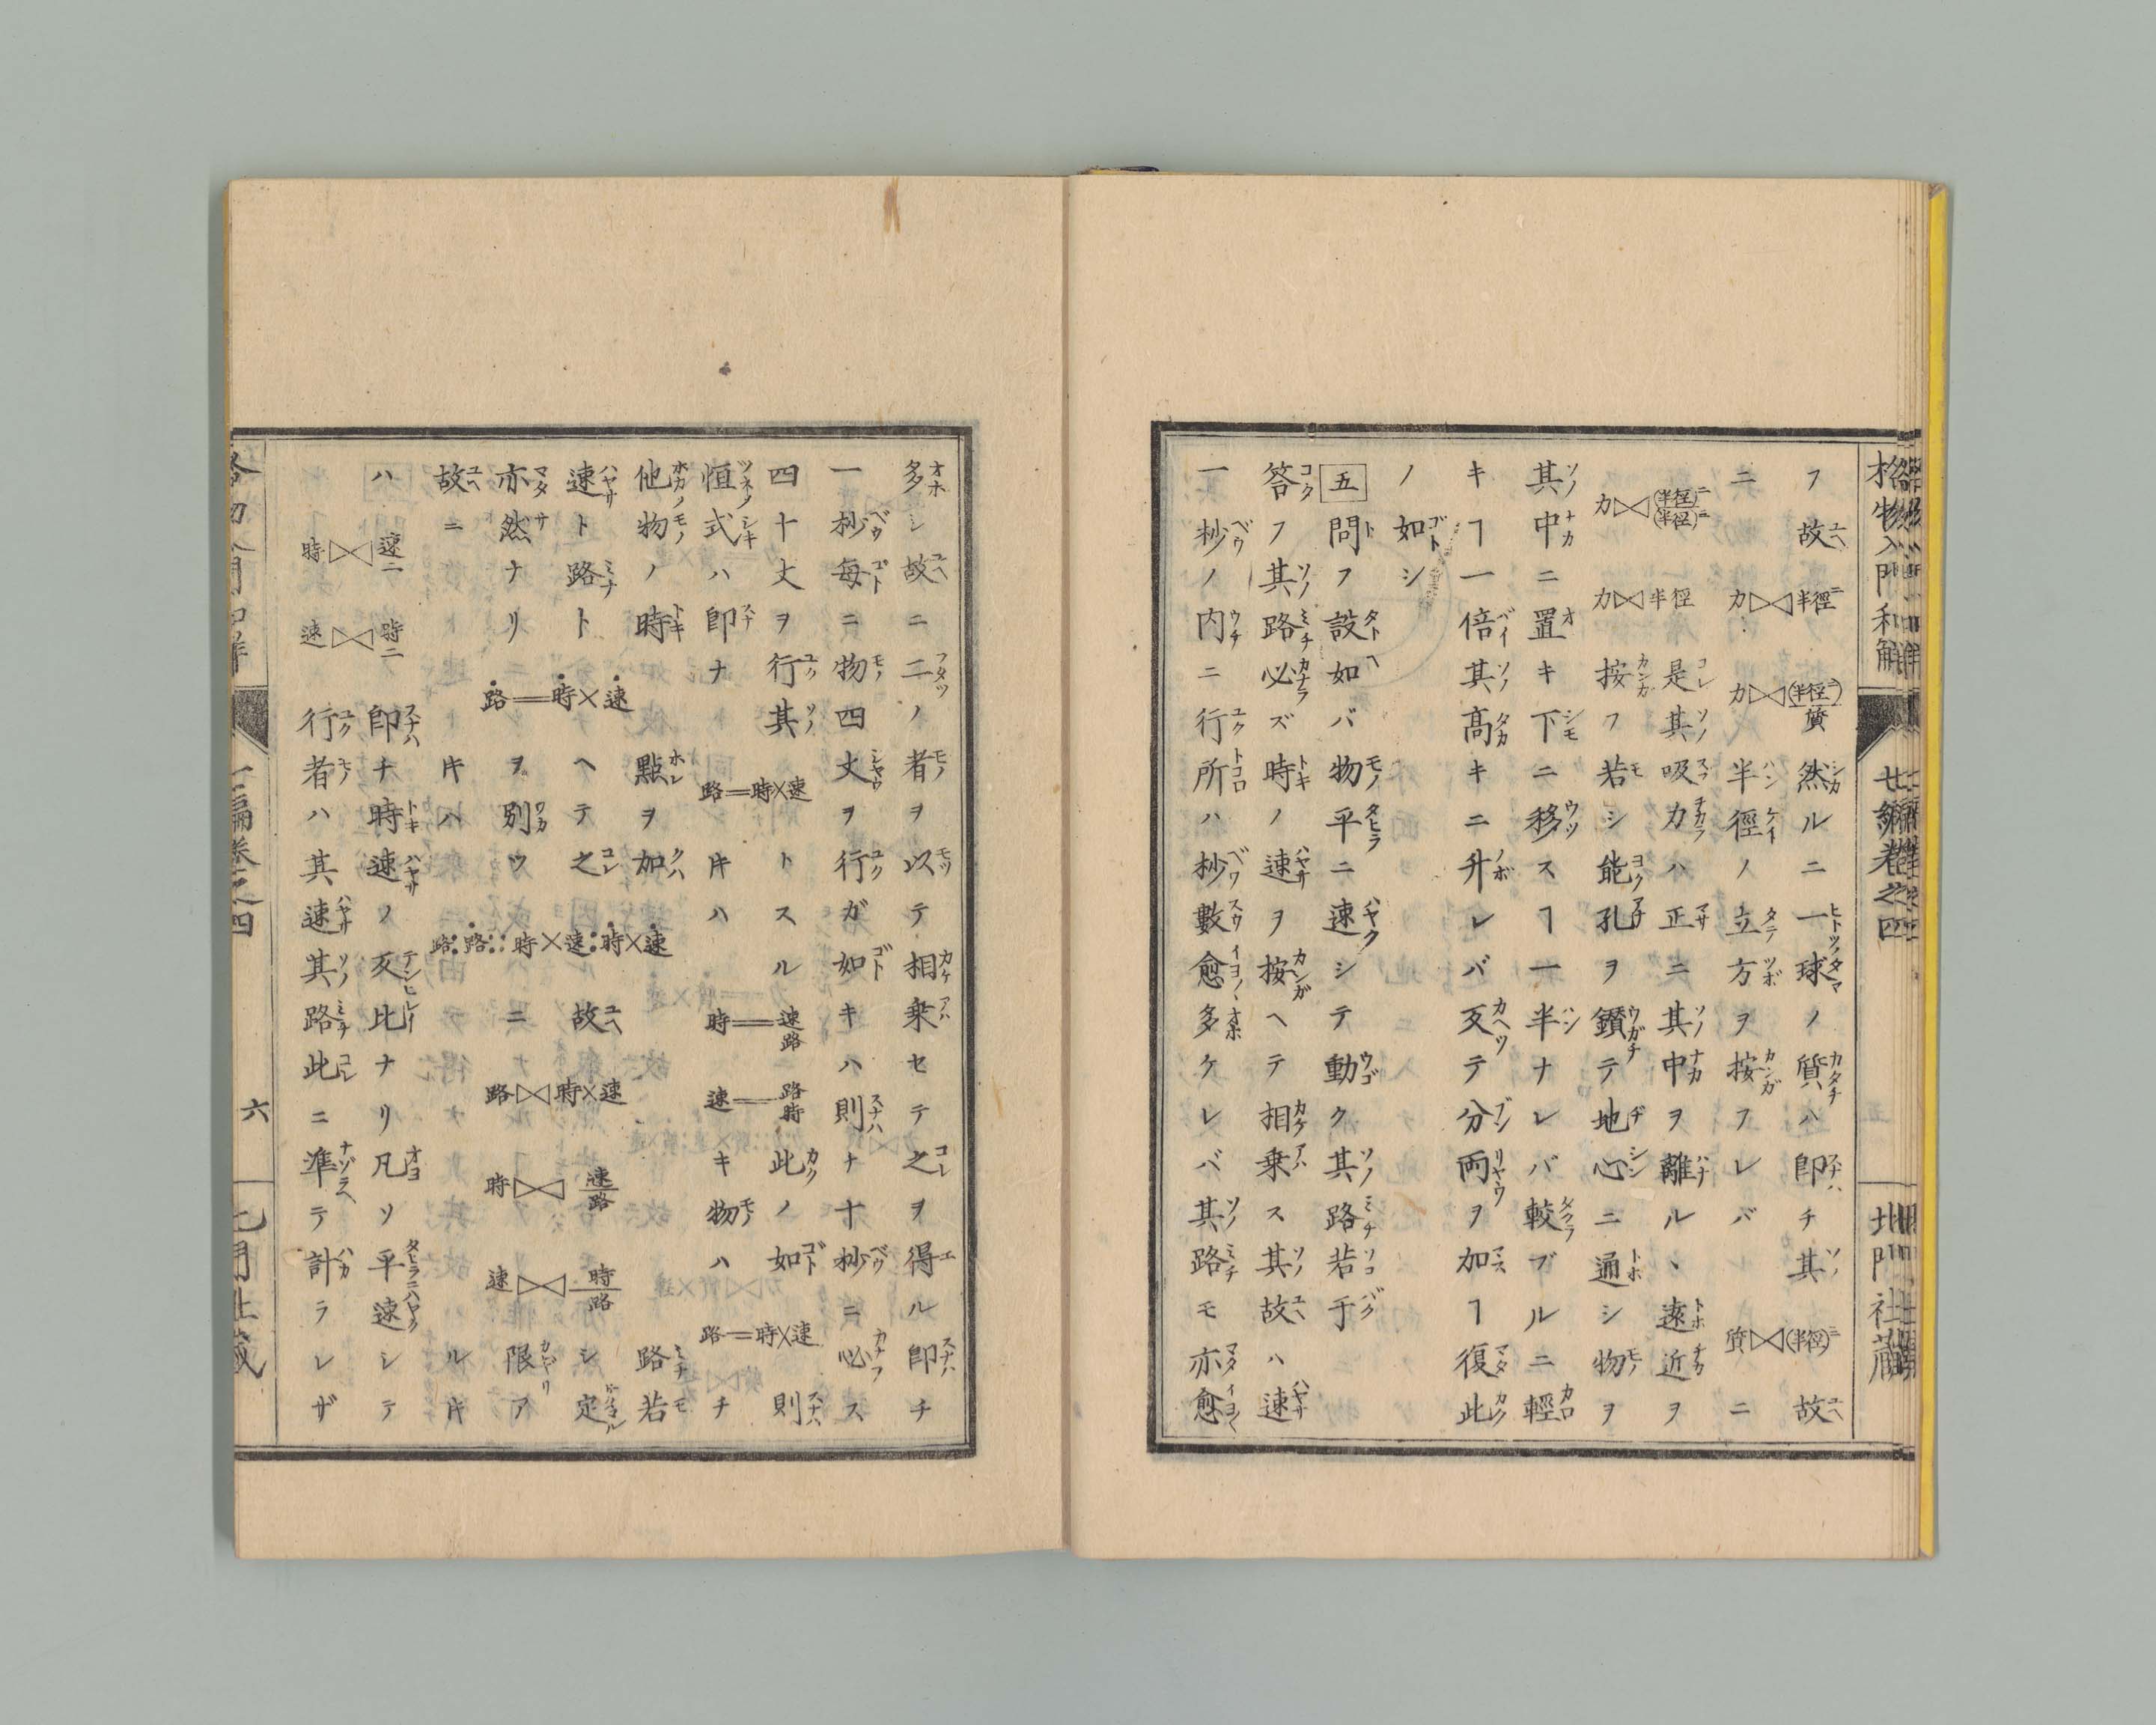 格物入門和解 七編卷之四 北門社藏
フ故ニ 力⋈半徑二 力⋈(半徑二)/質 然ルニ一球ノ質ハ即チ其 質⋈(半徑)三 故
ニ 半徑ノ立方ヲ按フレバ ニ
力⋈(半徑)三/(半徑)二 力⋈半徑 是其吸力ハ正ニ其中ヲ離ルヽ遠近ヲ
按フ若シ能孔ヲ鑚テ地心ニ通シ物ヲ
其中ニ置キ下ニ移スヿ一半ナレバ較ブルニ輕
キヿ一倍其高キニ升レバ反テ分両ヲ加ヿ復此
ノ如シ
五 問フ設如バ物平ニ速シテ動ク其路若于
答フ其路必ズ時ノ速ヲ按ヘテ相乗ス其故ハ速
一秒ノ内ニ行所ハ秒數愈多ケレバ其路モ亦愈
多シ故ニ二ノ者ヲ以テ相乗セテ之ヲ得ル即チ
一秒每ニ物四丈ヲ行ガ如キハ則ナ十秒ニ必ス
四十丈ヲ行其 路=時×速 トスル 時=路/速 速=路/時 此ノ如 路=時×速 則
恒式ハ即ナ 𪜈ハ キ物ハ チ
他物ノ時 點ヲ加 路若
速ト路ト ヘテ之 故 シ定
亦然ナリ 路=時×速 ヲ別ツ 路:路::時×速:時×速 ニ 路⋈時×速 時⋈路/速 速⋈路/時 限ア
故ニ 𪜈ハ ル𪜈
ハ 時⋈二/速 速⋈二/時 即チ時速ノ反比ナリ凡ソ平速シテ
行者ハ其速其路此ニ準テ計ラレザ
六